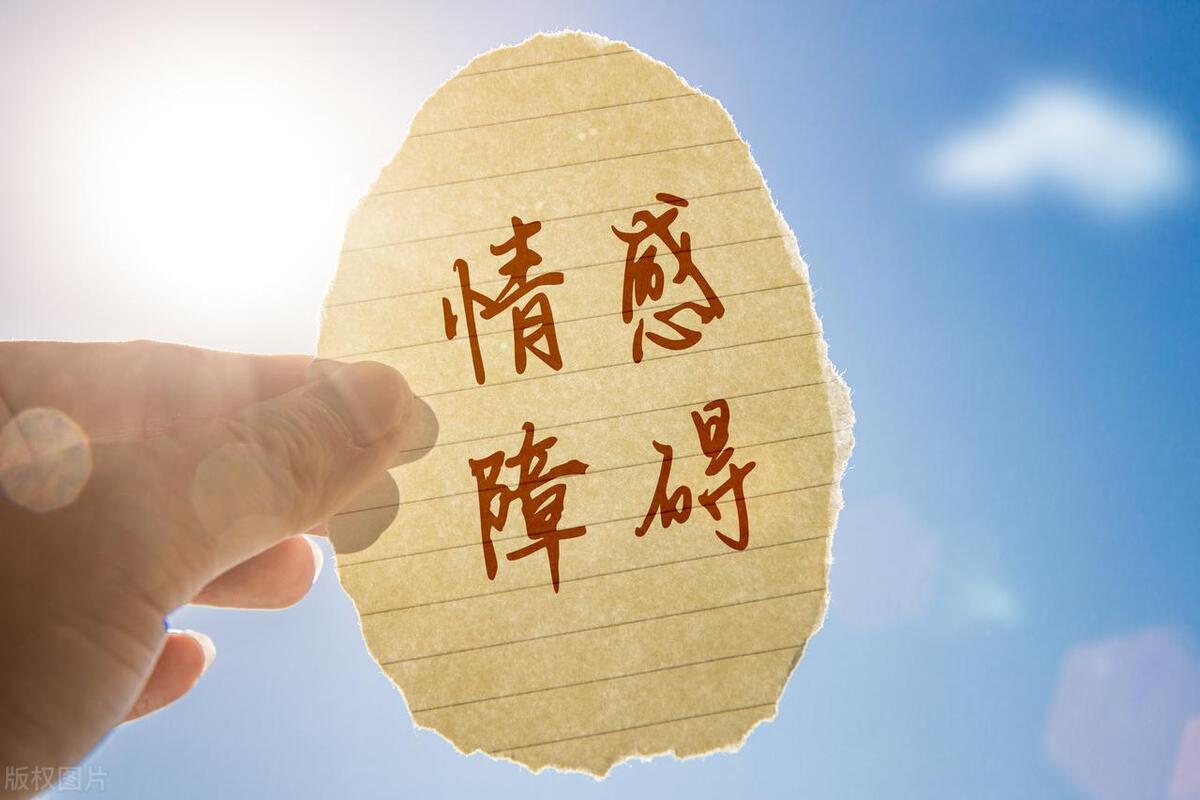 情感
障碍
版权图片